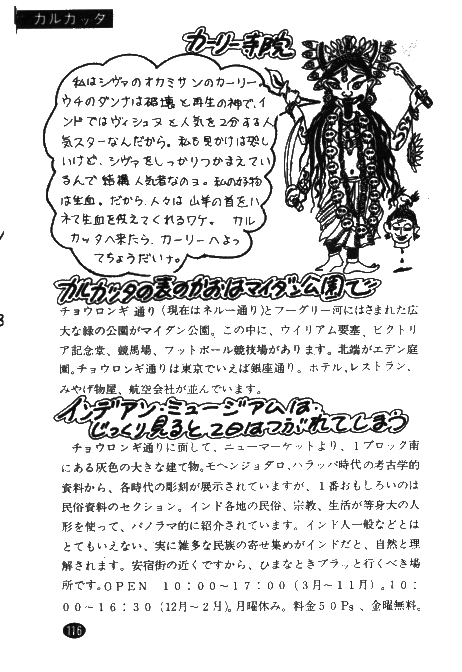 カルカッタ
カーリー寺院
私はシヴァのオカミサンのカーリー。
ウチのダンナは破壊と再生の神で、イ
ンドではヴィシュヌと人気を2分する人
気スターなんだから。私も見かけは恐し
いけど、シヴァをしっかりつかまえてい
るんで結構人気者なのヨ。私の好物
は生血。だから、人々は山羊の首をハ
ネて生血を供えてくれるワケ。カル
カッタへ来たら、カーリーへよっ
てちょうだいナ。
カルカッタの表のかおはマイダン公園で
チョウロンギ通り(現在はネルー通り)とフーグリー河にはさまれた広
大な緑の公園がマイダン公園。この中に、ウイリアム要塞、ビクトリ
ア記念堂、競馬場、フットボール競技場があります。北端がエデン庭
園。チョウロンギ通りは東京でいえば銀座通り。ホテル、レストラン、
みやげ物屋、航空会社が並んでいます。
インデアン・ミュージアムは、
じっくり見ると、2日はつぶれてしまう
チョウロンギ通りに面して、ニューマーケットより、1ブロック南
にある灰色の大きな建て物。モヘンジョダロ、ハラッパ時代の考古学的
資料から、各時代の彫刻が展示されていますが、1番おもしろいのは
民俗資料のセクション。インド各地の民俗、宗教、生活が等身大の人
形を使って、パノラマ的に紹介されています。インド人一般などとは
とてもいえない、実に雑多な民族の寄せ集めがインドだと、自然と理
解されます。安宿街の近くですから、ひまなときブラッと行くべき場
所です。OPEN 10:00〜17:00(3月〜11月)。10:
00〜16:30(12月〜2月)。月曜休み。料金50Ps、金曜無料。
116